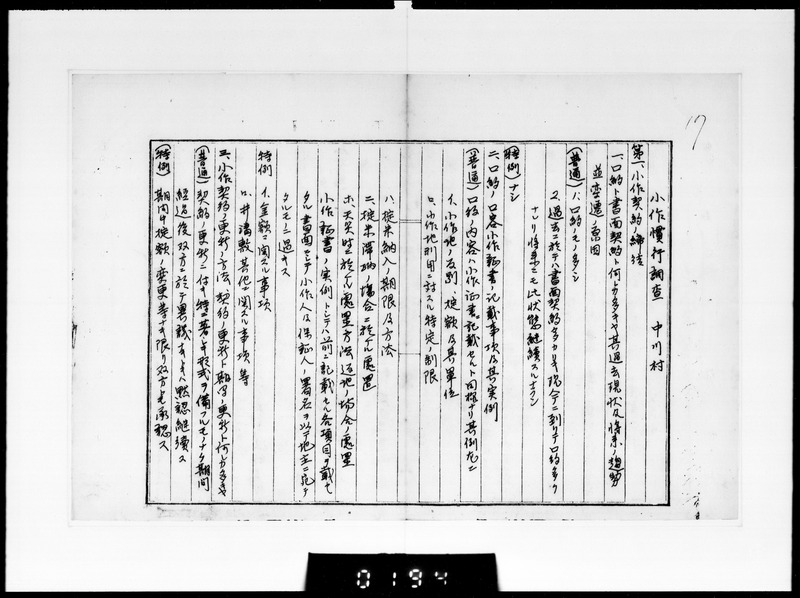 17
小作慣行調査 中川村
第一、小作契約ノ締結
一、口約ト書面契約ト何レカ多キヤ其過去現状及将来ノ趨勢
並変遷ノ原因
(普通) 1、口約ノモノ多シ
2、過去ニ於テハ書面契約多カリキ現今ニ到リテ口約多ク
ナレリ将来ニモ此状態継続スルナラン
(特例) ナシ
二、口約ノ内容小作証書ノ記載事項及其実例
(普通) 口約ノ内容ハ小作証書ニ記載セルト同様ナリ其例左ニ
イ、小作地ノ反別、掟額及其単位
ロ、小作地利用ニ対スル特定ノ制限
ハ、掟米納入ノ期限及方法
ニ、掟米滞納ノ場合ニ於ケル処置
ホ、天災時ニ於ケル処置方法返地ノ場合ノ処置
小作証書ノ実例トシテハ前ニ記載セル各項目ヲ載セ
タル書面ニシテ小作人及保証人ノ署名ヲ以テ地主ニ宛テ
タルモノニ過キス
特例 イ、金額ニ関スル事項
ロ、井溝敷其他ニ関スル事項 等
三、小作契約ノ更新ノ方法、契約ノ更新ト期間ノ更新ト何レカ多キヤ
(普通) 契約ノ更新ニ付キ特ニ著シキ形式ヲ備フルモノナク期間
経過後双方ニ於テ異議ナキトキハ黙認継続ス
(特例) 期間中掟額ノ変更等ナキ限リ双方共承認ス
0194